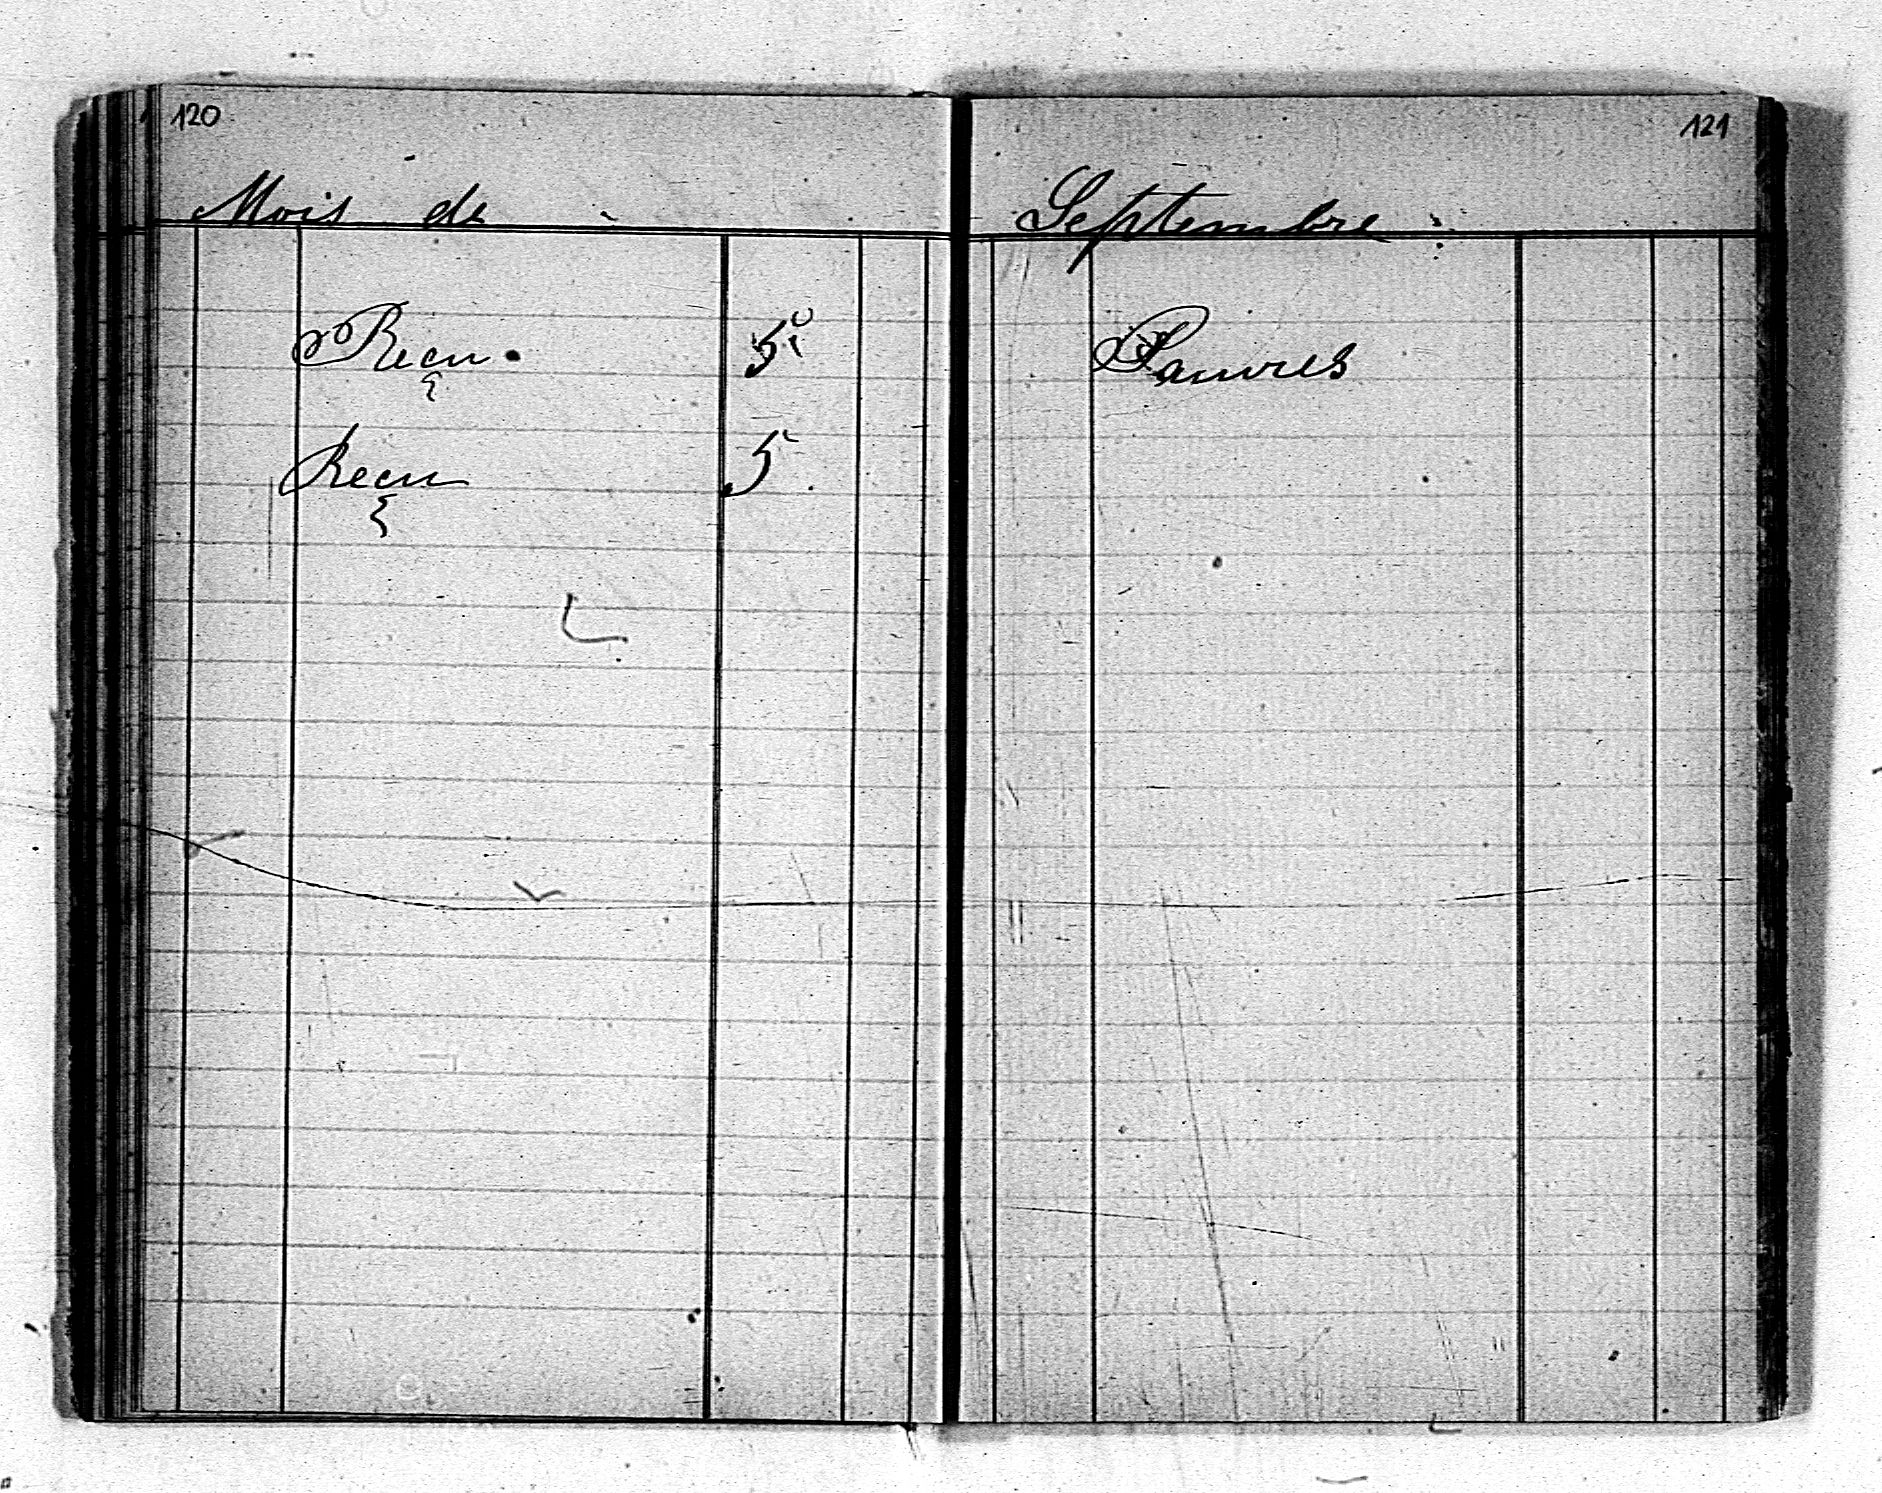 120
Mois de
Reçu. 5
Reçu 5
121
Septembre :
Pauvres